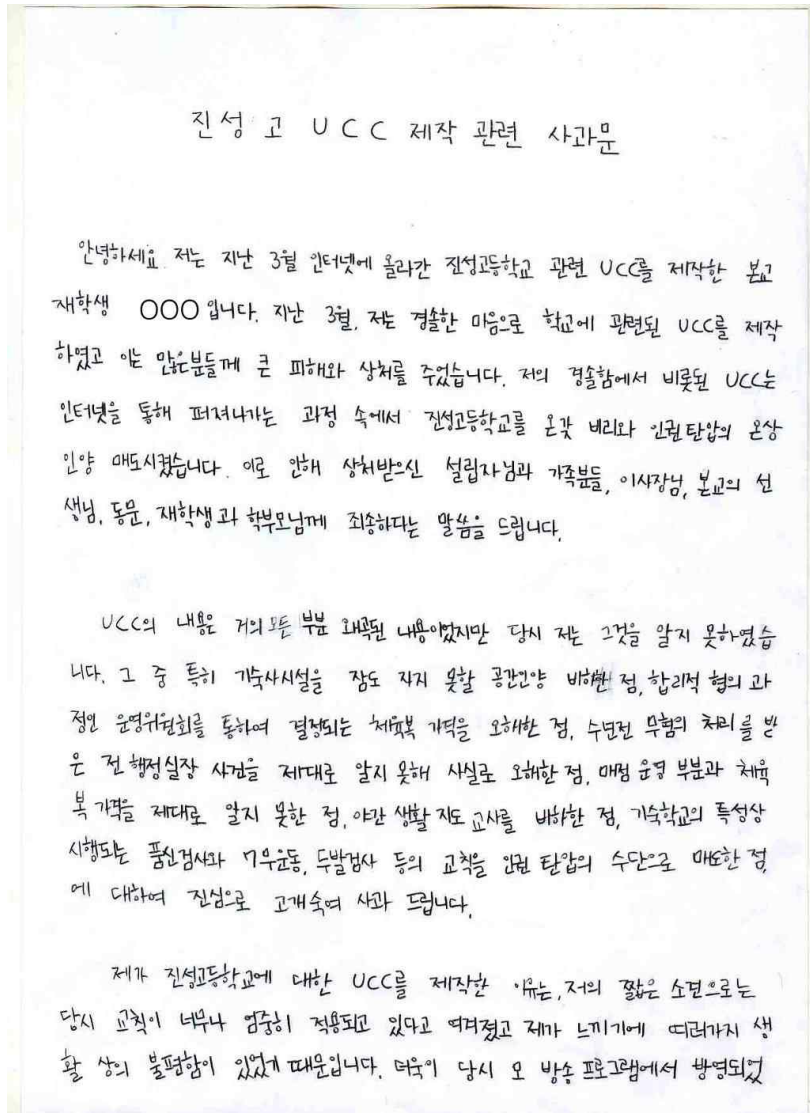 진성고 UCC 제작 관련 사과문
안녕하세요. 저는 지난 3월 인터넷에 올라간 진성고등학교 관련 UCC를 제작한 본교
재학생 OOO입니다. 지난 3월, 저는 경솔한 마음으로 학교에 관련된 UCC를 제작
하였고 이는 많은분들께 큰 피해와 상처를 주었습니다. 저의 경솔함에서 비롯된 UCC는
인터넷을 통해 퍼져나가는 과정 속에서 진성고등학교를 온갖 비리와 인권탄압의 온상
인양 매도시켰습니다. 이로 인해 상처받으신 설립자님과 가족분들, 이사장님, 본교의 선
생님, 동문, 재학생과 학부모님께 죄송하다는 말씀을 드립니다.
UCC의 내용은 거의 모든 부분 왜곡된 내용이었지만 당시 저는 그것을 알지 못하였습
니다. 그 중 특히 기숙사시설을 잠도 자지 못할 공간인양 비하한 점, 합리적 협의 과
정인 운영위원회를 통하여 결정되는 체육복 가격을 오해한 점, 수년전 무혐의 처리를 받
은 전 행정실장 사건을 제대로 알지 못해 사실로 오해한 점, 매점 운영 부분과 체육
복 가격을 제대로 알지 못한 점, 야간 생활 지도 교사를 비하한 점, 기숙학교의 특성상
시행되는 품신검사와 7무운동, 두발검사 등의 교칙을 인권 탄압의 수단으로 매도한 점
에 대하여 진심으로 고개숙여 사과 드립니다.
제가 진성고등학교에 대한 UCC를 제작한 이유는, 저의 짧은 소견으로는
당시 교칙이 너무나 엄중히 적용되고 있다고 여겨졌고 제가 느끼기에 여러가지 생
활 상의 불편함이 있었기 때문입니다. 더욱이 당시 모 방송 프로그램에서 방영되었